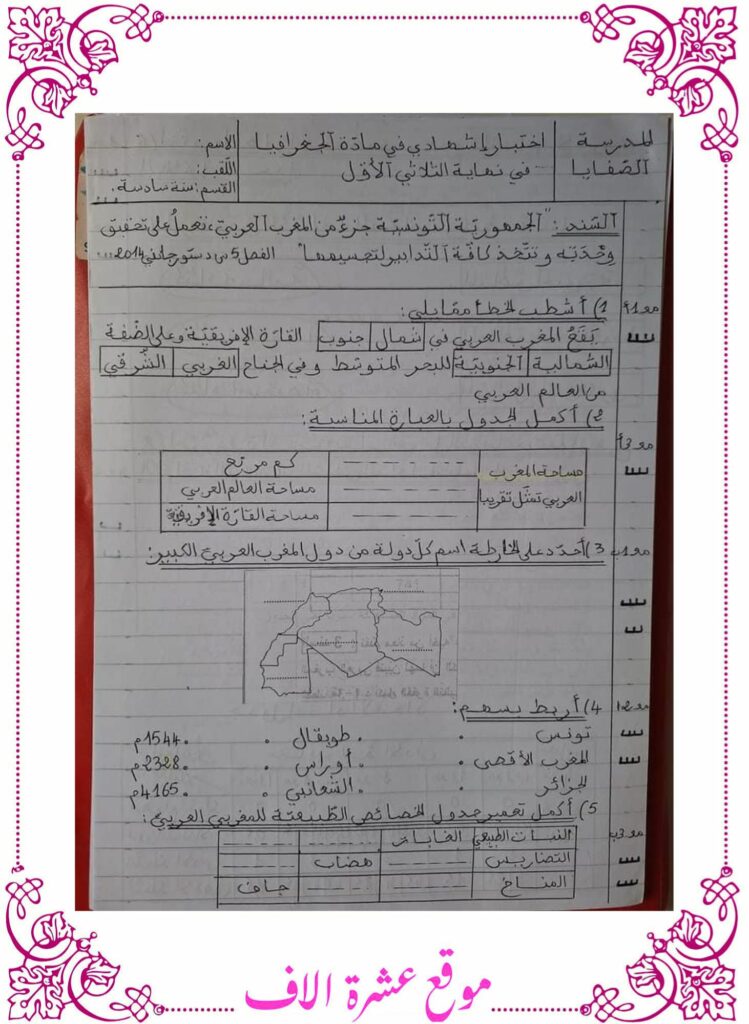 المدرسة
الصّفايا
اختبار إشهادي في مادّة الجغرافيا
في نهاية الثلاثي الأوّل
الاسم:
اللّقب:
القسم: سنة سادسة.
السّند: "الجمهوريّة التّونسيّة جزء من المغرب العربيّ، تعمل على تحقيق
وحدته وتتّخذ كافّة التّدابير لتجسيمها" الفصل 5 من دستور جانفي 2014...
مع 1 أ
1) أشطب الخطأ مقابلي:
يَقَعُ المغرب العربي في شمال جنوب القارّة الإفريقيّة وعلى الضّفة
الشّمالية الجنوبيّة للبحر المتوسّط وفي الجناح الغربي الشّرقي
من العالم العربي
2) أكمل الجدول بالعبارة المناسبة:
مع 3 أ
مساحة المغرب
العربي تمثّل تقريبا
كم مربّع
مساحة العالم العربي
مساحة القارّة الإفريقيّة
مع 1 ب
3) أحدّد على الخارطة اسم كلّ دولة من دول المغرب العربيّ الكبير:
مع 2 أ
4) أربط بسهم:
تونس . . طوبقال . . 1544م
المغرب الأقصى . . أوراس . . 2328م
الجزائر . . الشّعانبي . . 4165م
5) أكمل تعمير جدول الخصائص الطّبيعيّة للمغرب العربيّ:
مع 3 ب
النّبات الطّبيعي الغابات
التّضاريس هضاب
المناخ جاف
موقع عشرة الاف